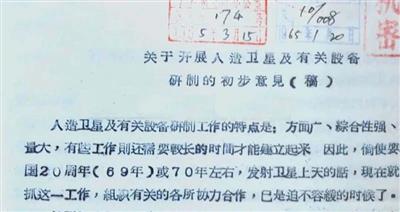 174
5 3 15
10/008
65 1 20
机密
关于开展人造卫星及有关設备
研制的初步意見(稿)
人造卫星及有关設备研制工作的特点是:方面广、綜合性强、
量大,有些工作則还需要較长的时間才能建立起来 因此,倘使要
国20周年(69年)或70年左右,发射卫星上天的話,現在就
抓这一工作,組織有关的各所协力合作,已是迫不容緩的时候了。